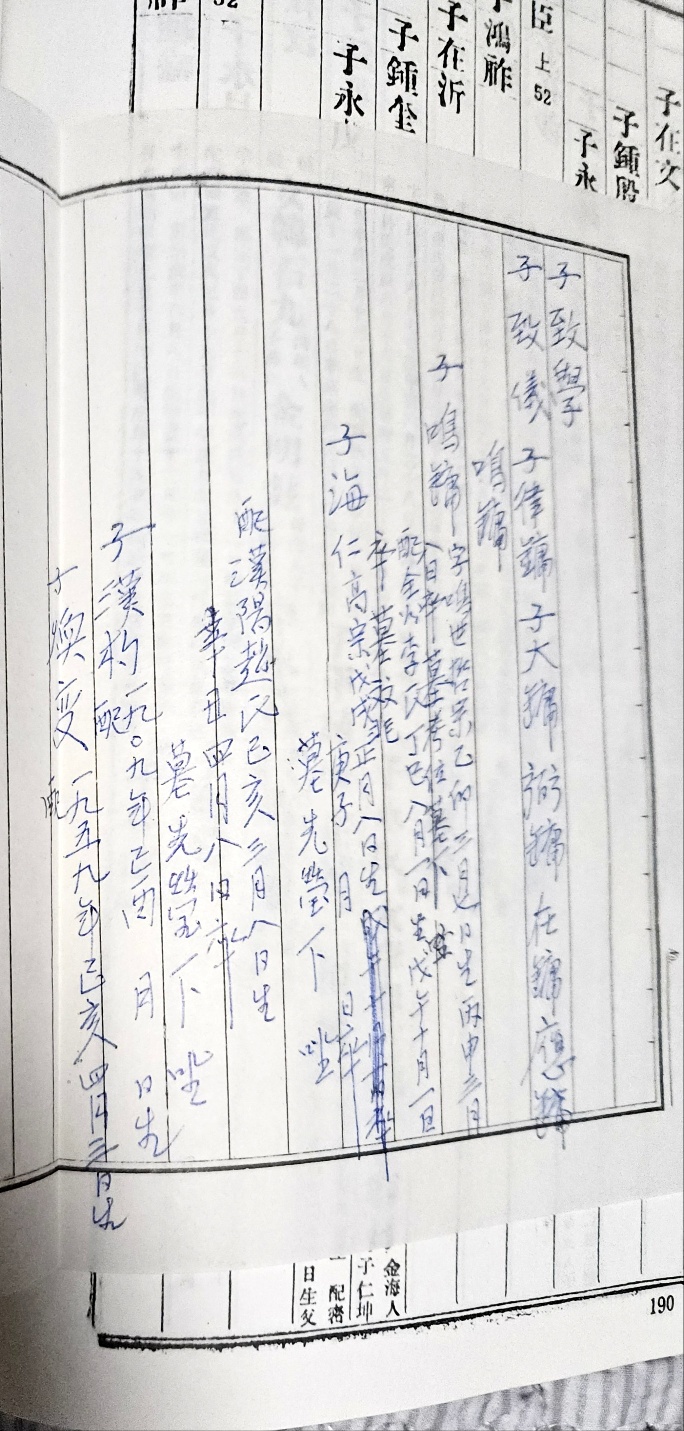 子在文
子鍾殷
子永
臣 上52
子鴻胙
子在沂
子鍾奎
子永
52
子致學
子致儀 子律鏞 子大鏞 弼鏞 在鏞 應鏞
鳴鏞
子 鳴鏞 字鳴世 哲宗乙卯三月七日生 丙申三月
八日卒 墓考位墓下 坐
配金山李氏 丁巳八月一日生 戊午十月一日
卒 墓 雙兆
子海仁 高宗戊戌正月八日生
庚子 月 日卒
墓 先塋下 坐
配漢陽趙氏 己亥三月八日生
辛丑四月八日卒
墓先塋下 坐
子漢杓 一九〇九年己酉 月 日生
配
子煥変 一九五九年己亥四月三日生
配
金海人
子仁坤
配密
日生父
190